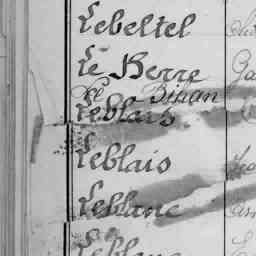 Lebeltel
Le Berre
Le Bihan
Leblais
Leblais
Leblanc
Leblanc